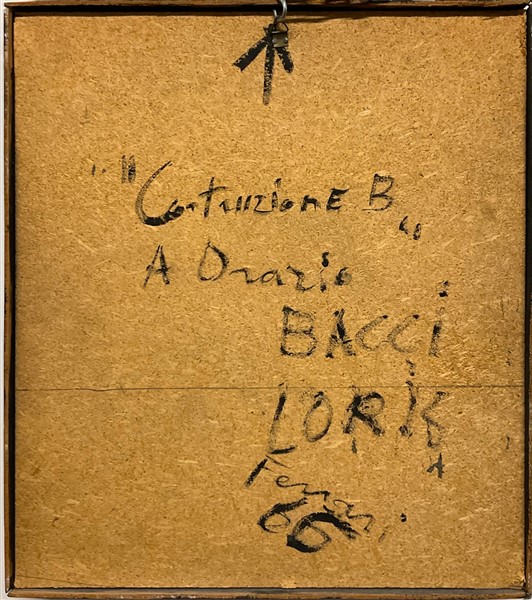 "Costruzione B"
A Orazio
BACCI
LORIS
Ferrari
66